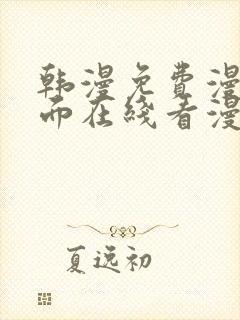 韩漫免费漫
而在线看漫
夏逸初